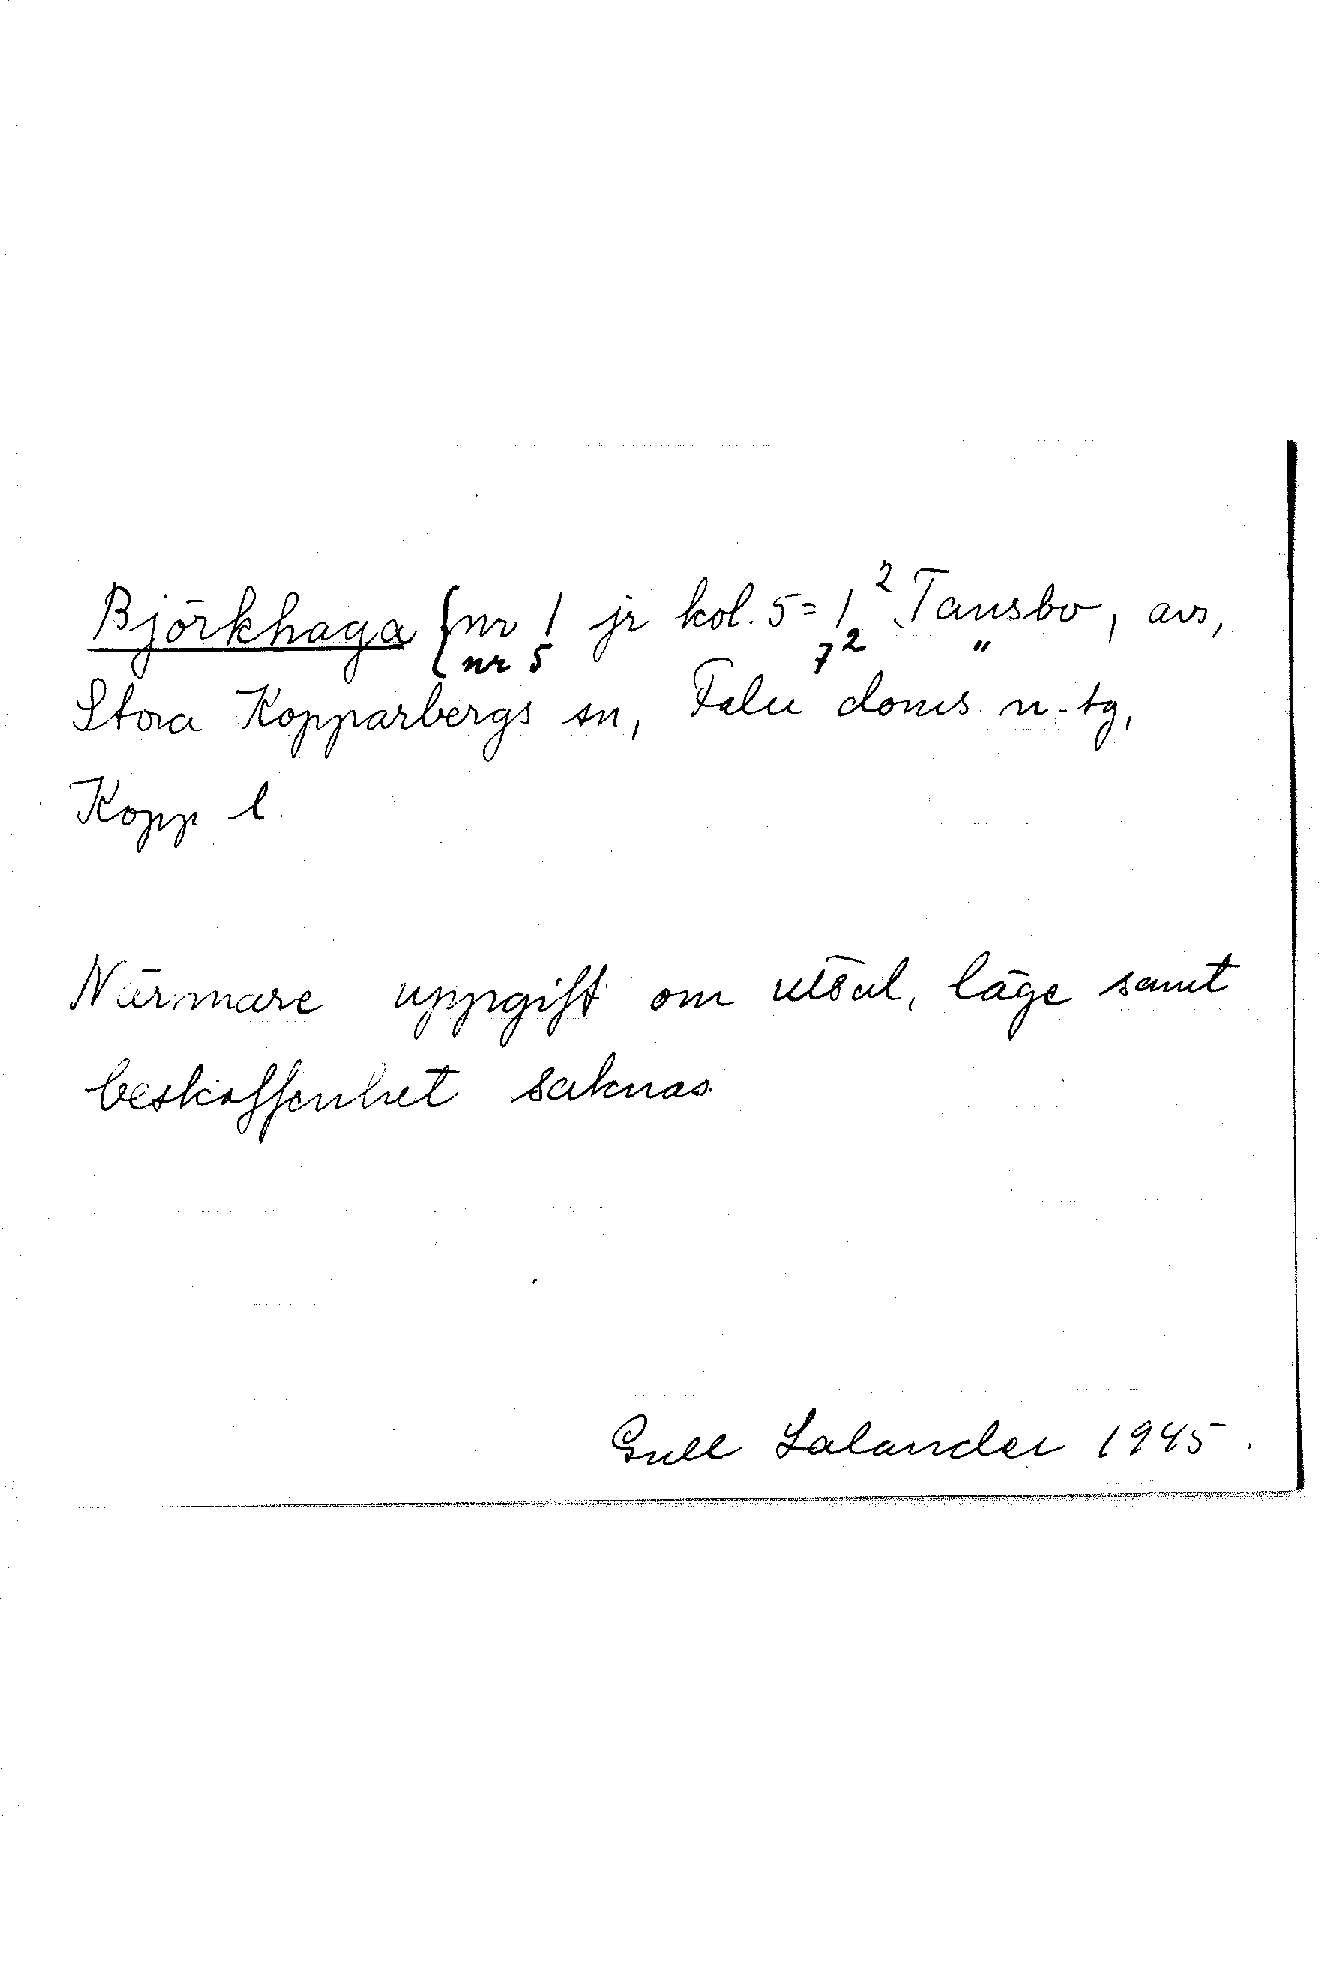 Björkhaga { nr 1 jr kol. 5 = 1² Tansbo, avs,
nr 5 7² "
Stora Kopparbergs sn, Falu doms n-tg,
Kopp l
Närmare uppgift om uttal, läge samt
beskaffenhet saknas.
Gull Salander 1945.